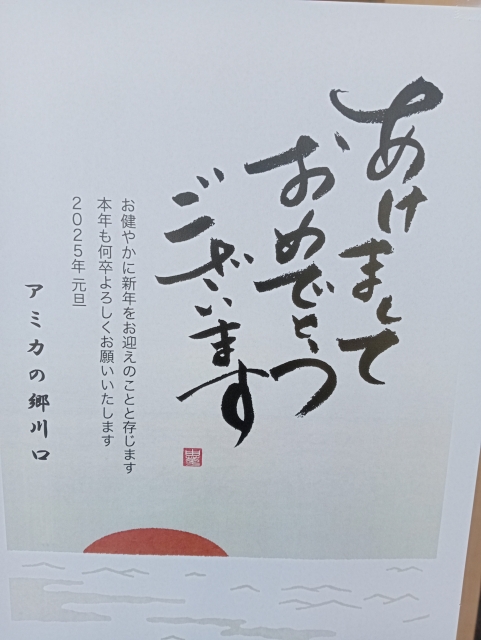 あけまして
おめでとう
ございます
お健やかに新年をお迎えのことと存じます
本年も何卒よろしくお願いいたします
2025年 元旦
アミカの郷川口